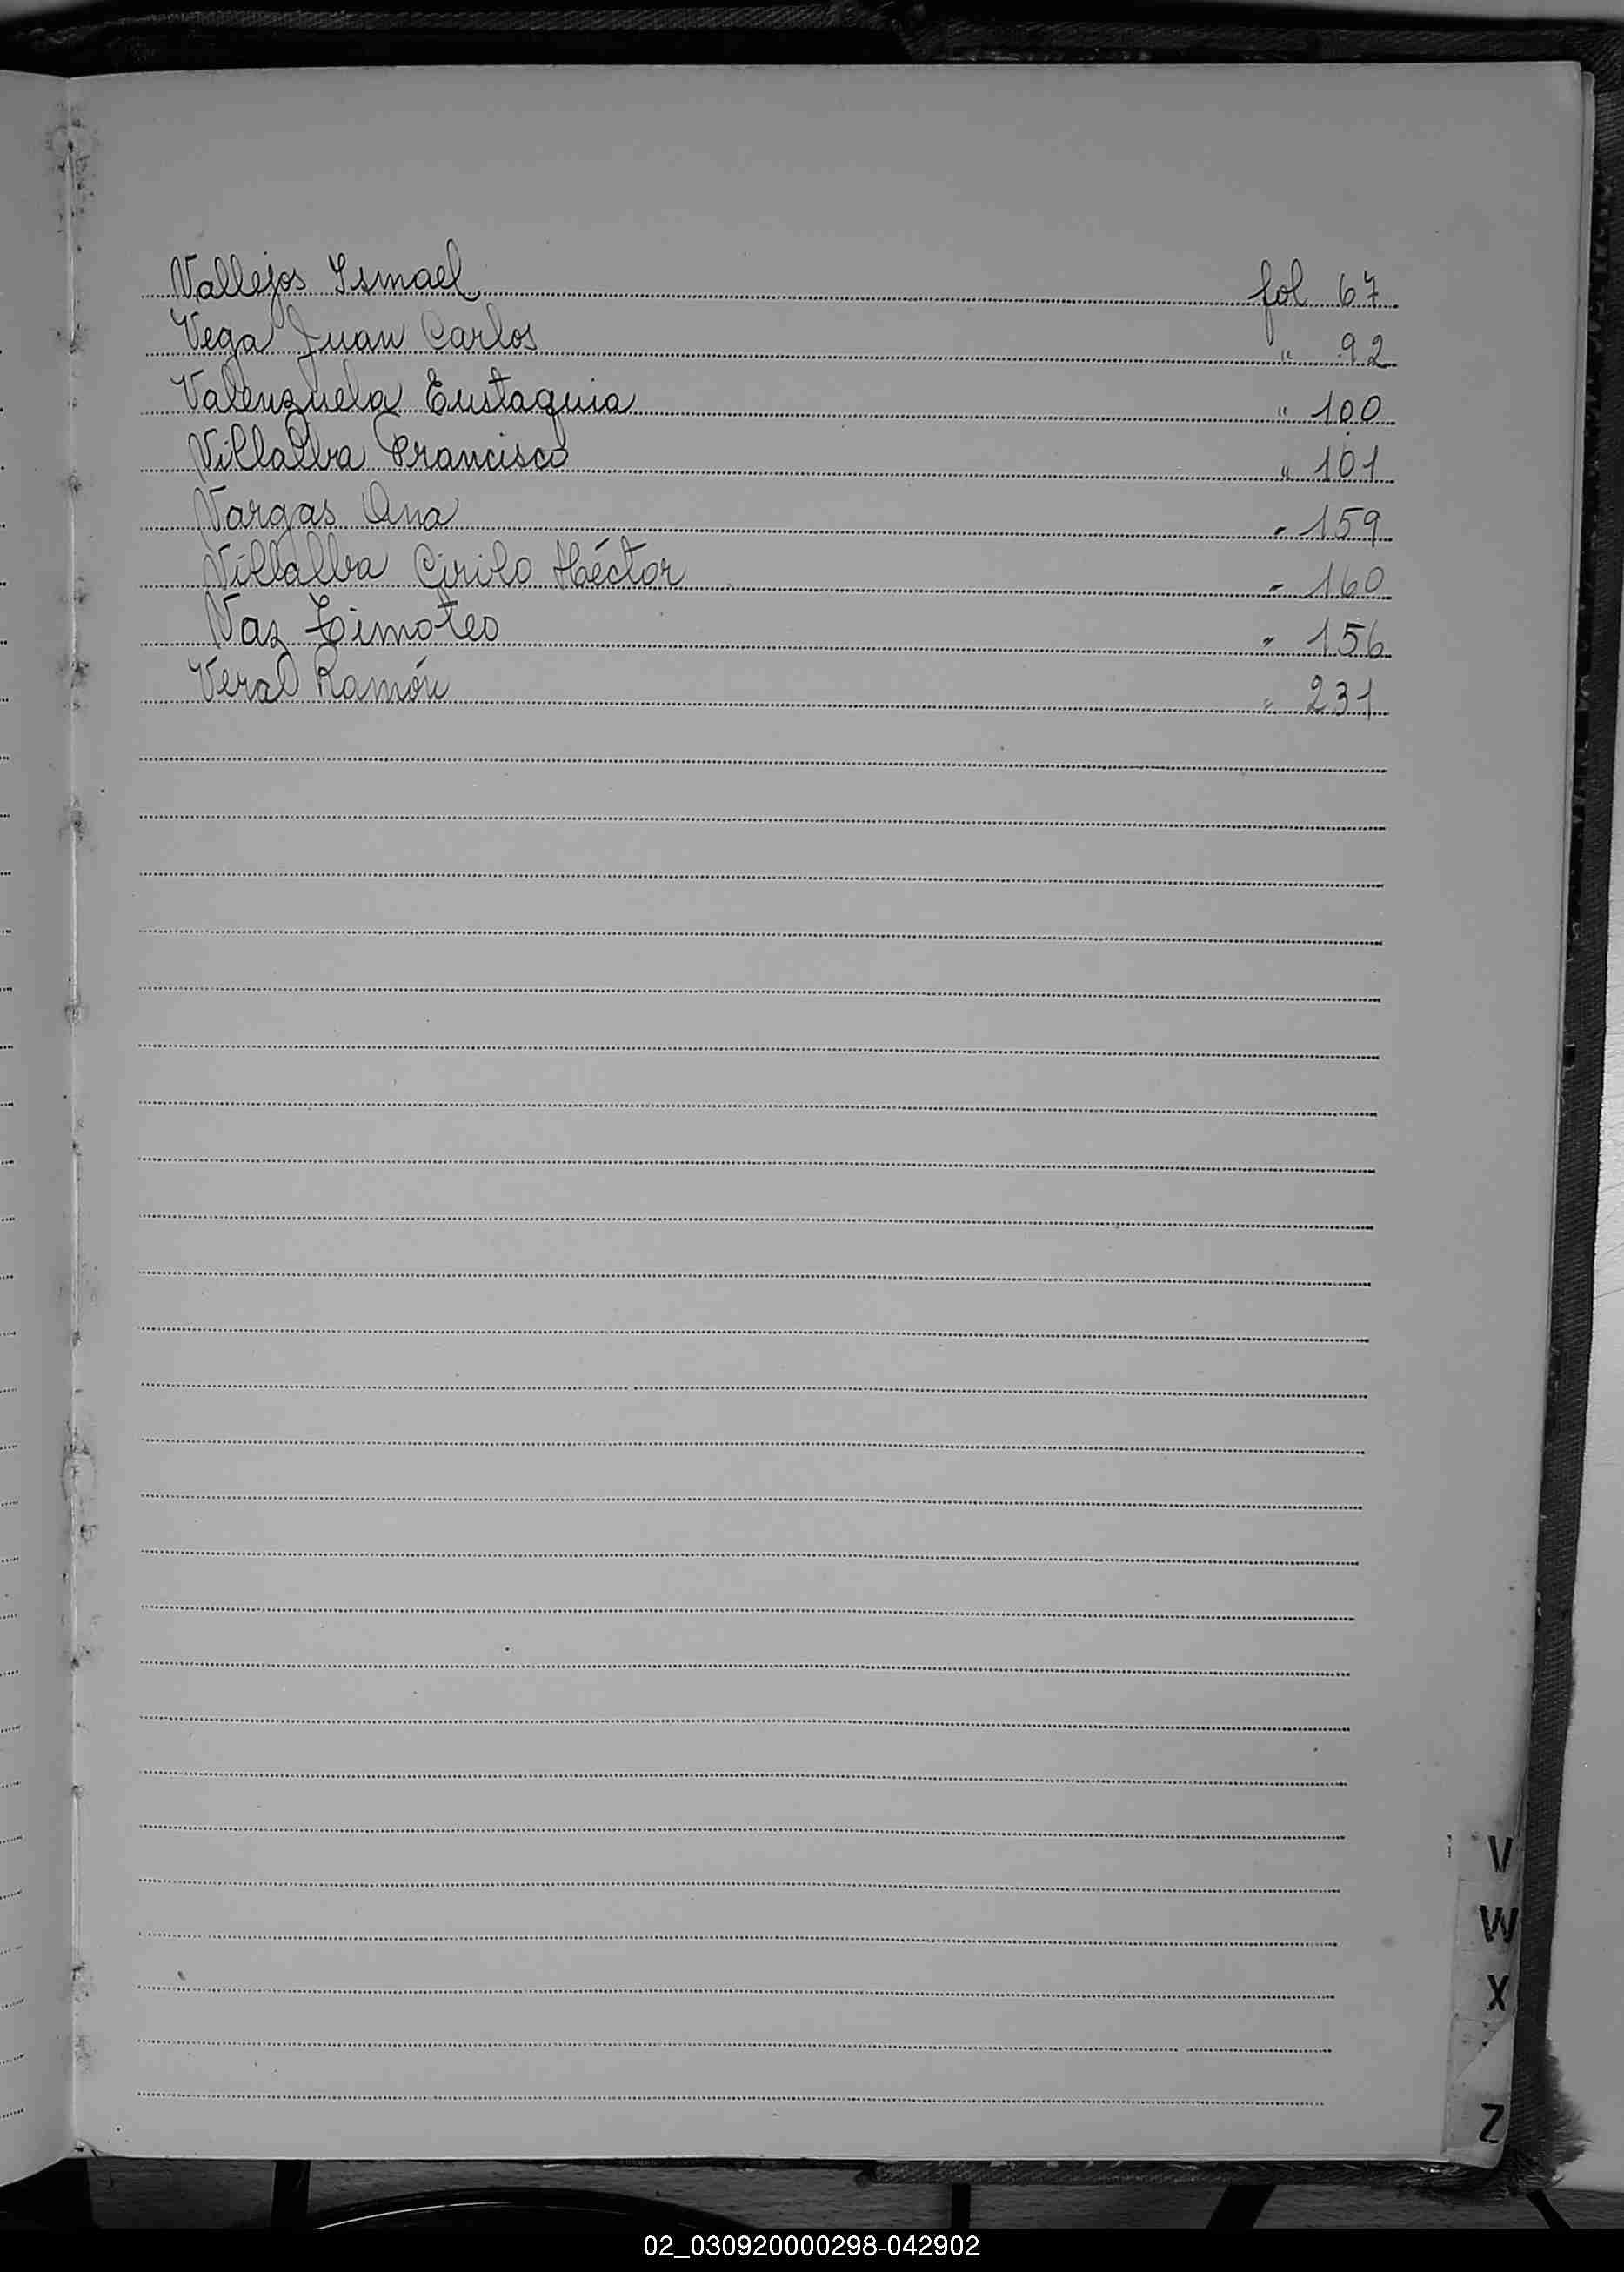 Vallejos Ismael fol 67
Vega Juan Carlos " 92
Valenzuela Eustaquia " 100
Villalba Francisco " 101
Vargas Ana " 159
Villalba Cirilo Héctor " 160
Vaz Timoteo " 156
Vera Ramón " 231
V
W
X
Z
02_030920000298-042902